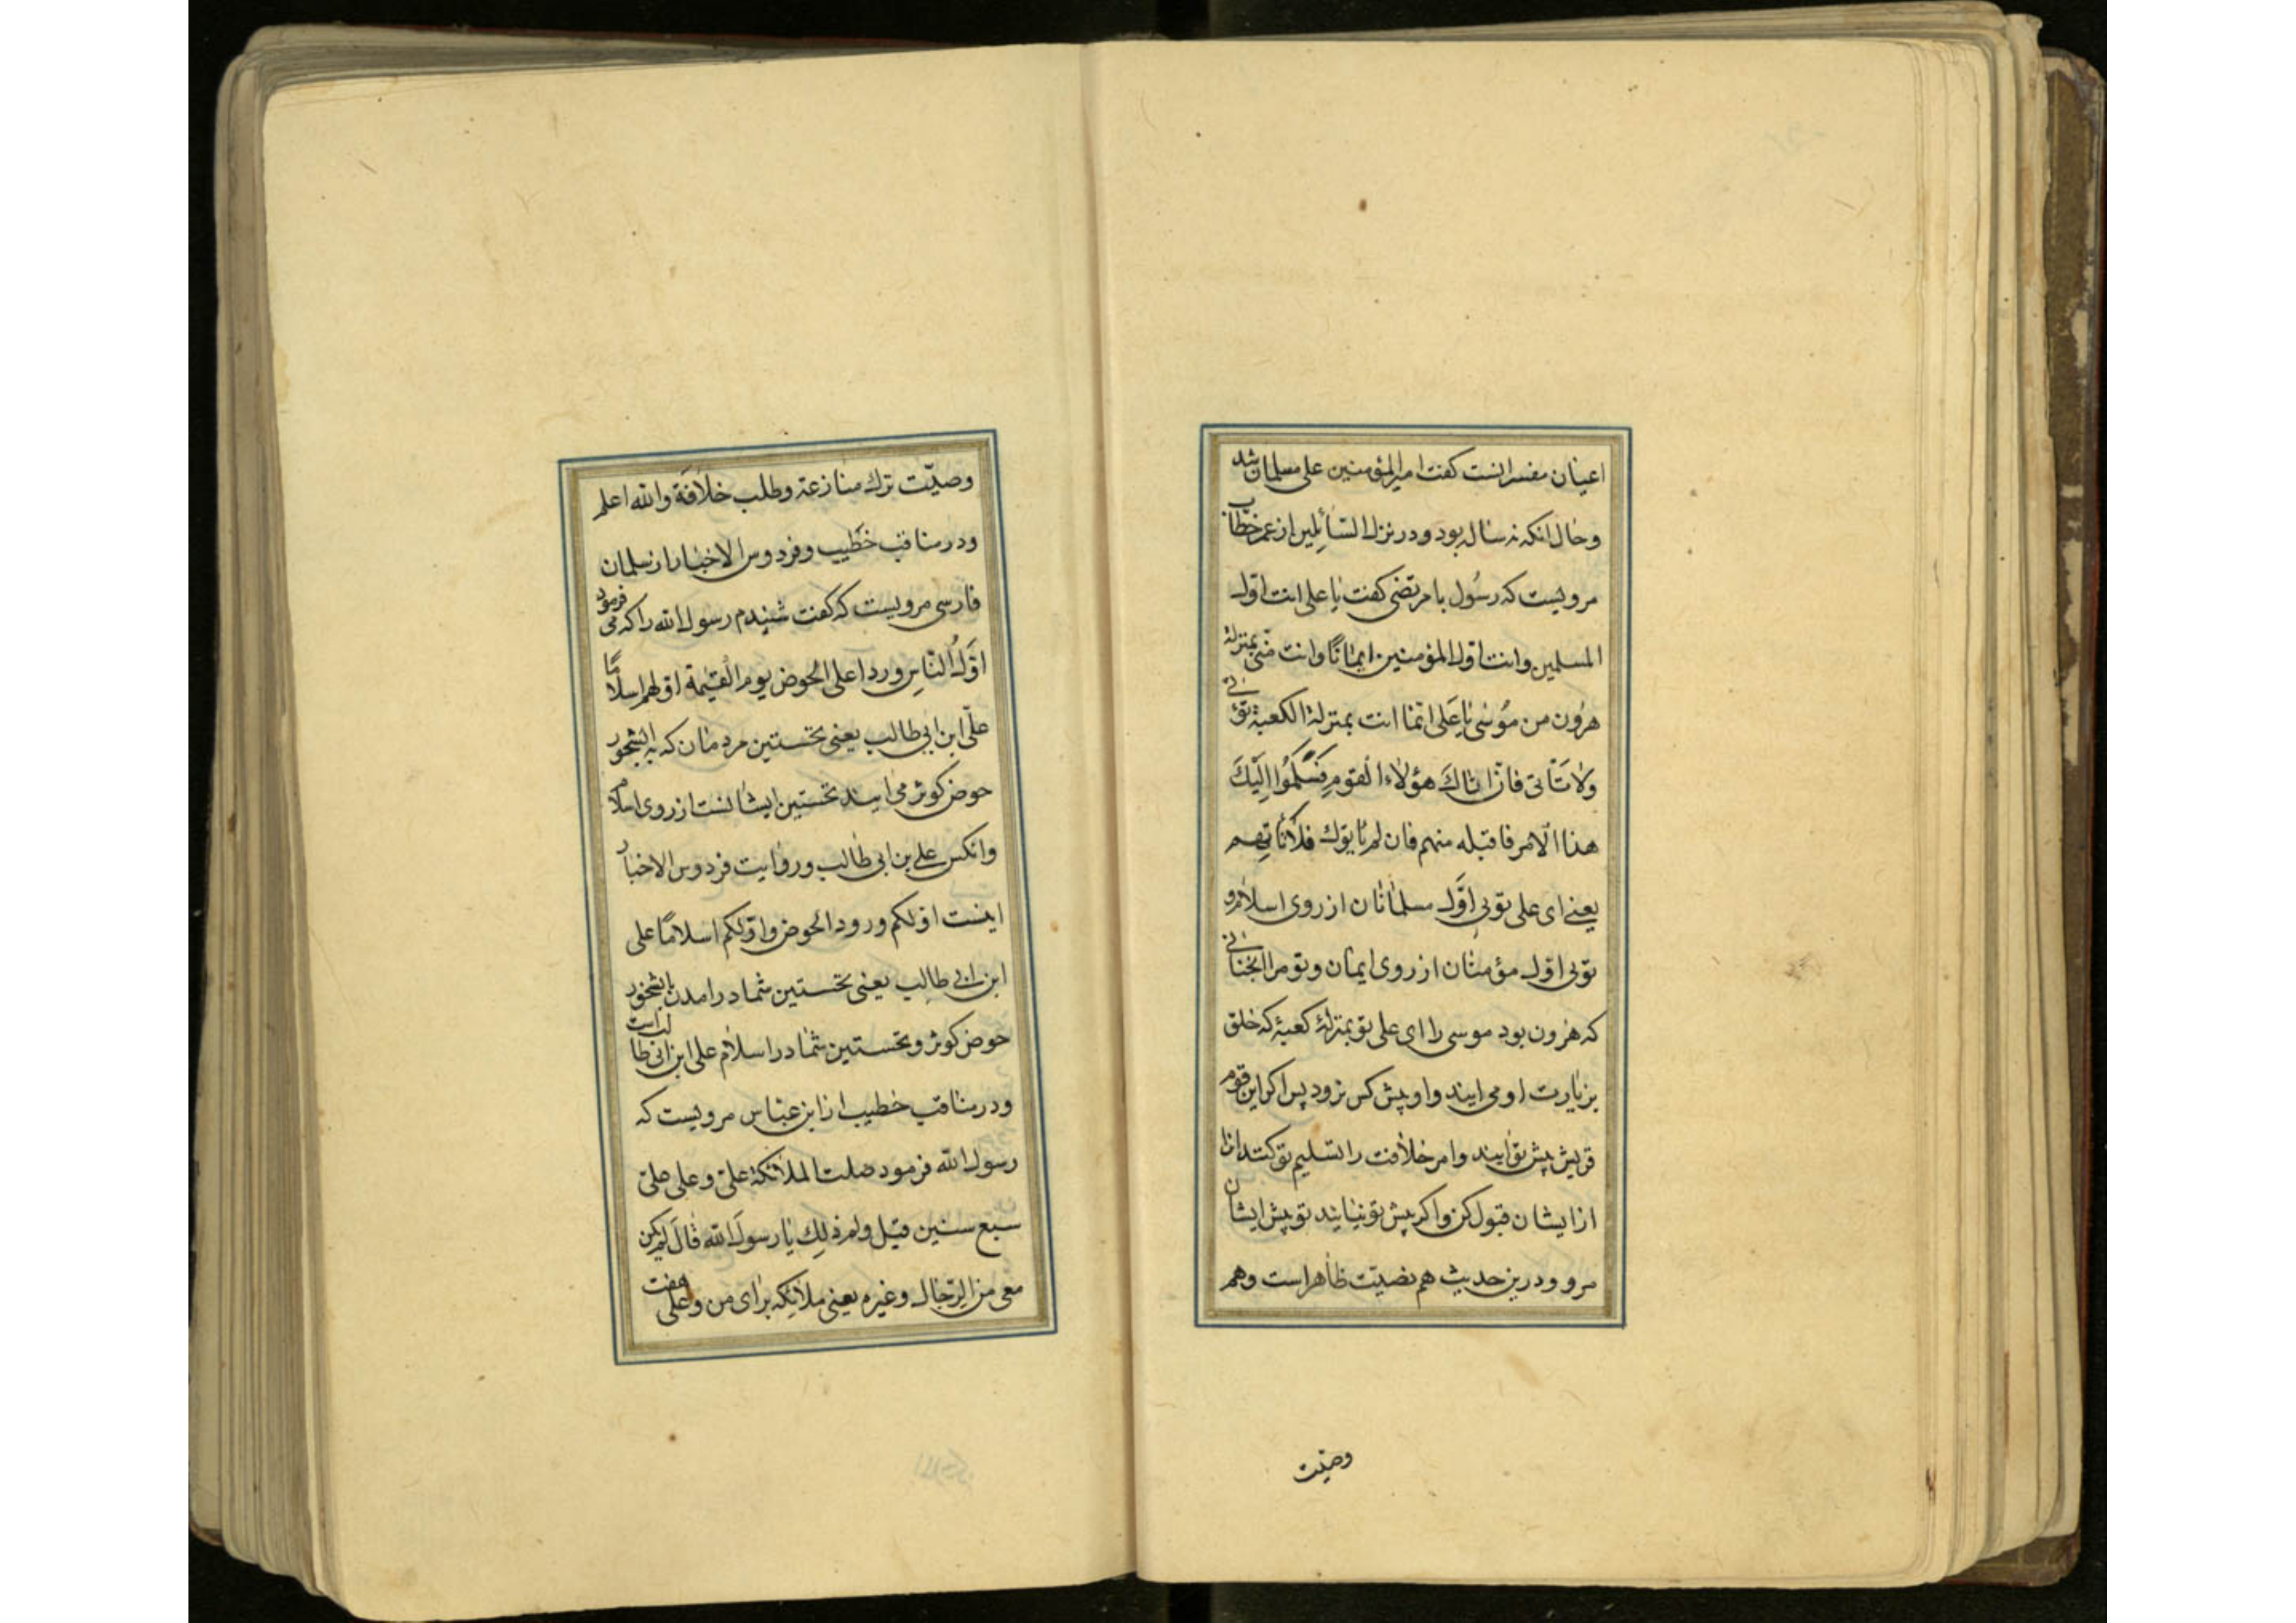 اعیان مفسرانست کفت امیرالمؤمنین علی مسلمان شد
وحال انکه نه ساله بود و در نزل السّائلین از عمر خطاب
مرویست که رسُول با مرتضی کفت یا علی انت اوّل
المسلمین وانت اوّل المؤمنین ایمانًا وانت منّی بمنزلة
هرون من مُوسٰی یا عَلی انّما انت بمنزلة الکعبة تؤتی
ولا تَأتی فان اتاكَ هؤلاء القوم فسَلّمُوا اِلَیْكَ
هذا الامر فاقبله منهم فان لم یأتوك فلا تأتِهم
یعنے ای علی تویی اوّل مسلمانان از روی اسلام و
تویی اوّل مؤمنان از روی ایمان و تو مرا بجنانی
که هرون بود موسی را ای علی تو بمنزلهٔ کعبهٔ که خلق
بزیارت او می ایند واو پیش کس نرود پس اکر این قوم
قریش پیش تو ایند وامر خلافت را تسلیم تو کنند انرا
از ایشان قبول کن واکر پیش تو نیایند تو پیش ایشان
مرو و درین حدیث هم نصیّت ظاهر است وهم
وصیّت
وصیّت ترك منازعة وطلب خلافة والله اعلم
ودر مناقب خطیب وفردوس الاخبار از سلمان
فارسی مرویست که کفت شنیدم رسول الله را که می فرمود
اوّلُ النّاسِ وردا علی الحوض یوم القیمة اولهم اسلامًا
علیّ ابن ابی طالب یعنی نخستین مردمان که به ابشخور
حوض کوثر می ایند نخستین ایشانست از روی اسلام
وانکس علے بن ابی طالب وروایت فردوس الاخبار
اینست اولکم ورود الحوض واوّلکم اسلامًا علی
ابن ابی طالِب یعنی نخستین شما در امدن بابشخور
حوض کوثر ونخستین شما در اسلام علی ابن ابی طالب است
ودر مناقب خطیب از ابن عبّاس مرویست که
رسول الله فرمود صلت الملائکة علیّ وعلی علیّ
سبع سنین قیل ولم ذلِك یا رسولَ الله قالَ لم یکن
معی من الرّجال وغیره یعنی ملائکه برای من وعلی هفت